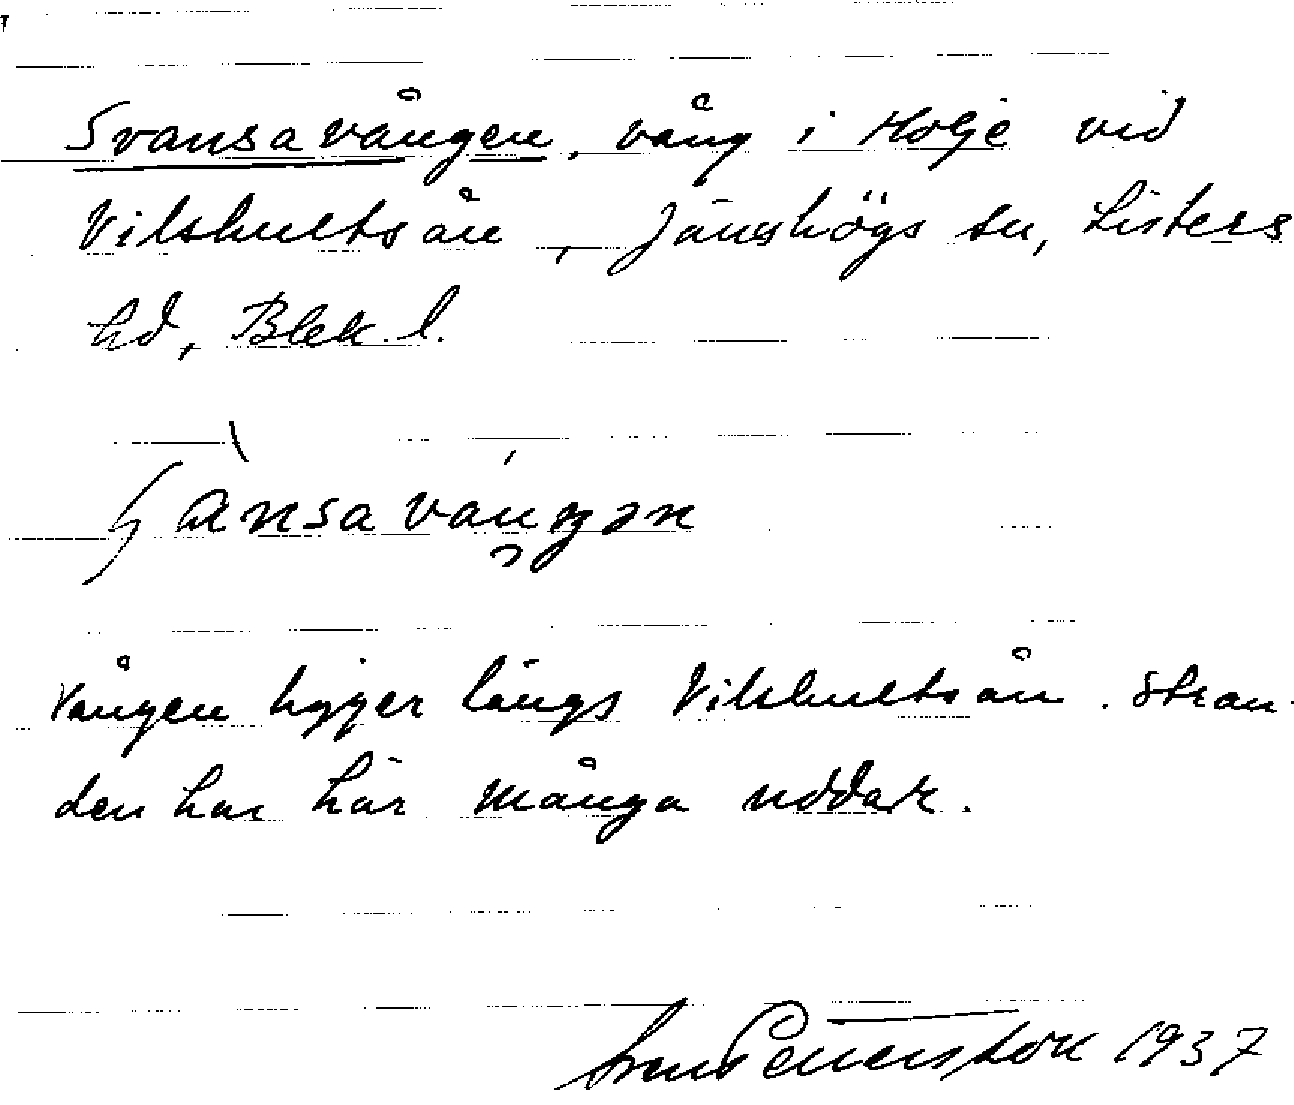 Svansavången, vång i Holje vid
Vilshultsån, Jämshögs sn, Listers
hd, Blek. l.
Vången ligger längs Vilshultsån. Stran-
den har här många uddar.
1937